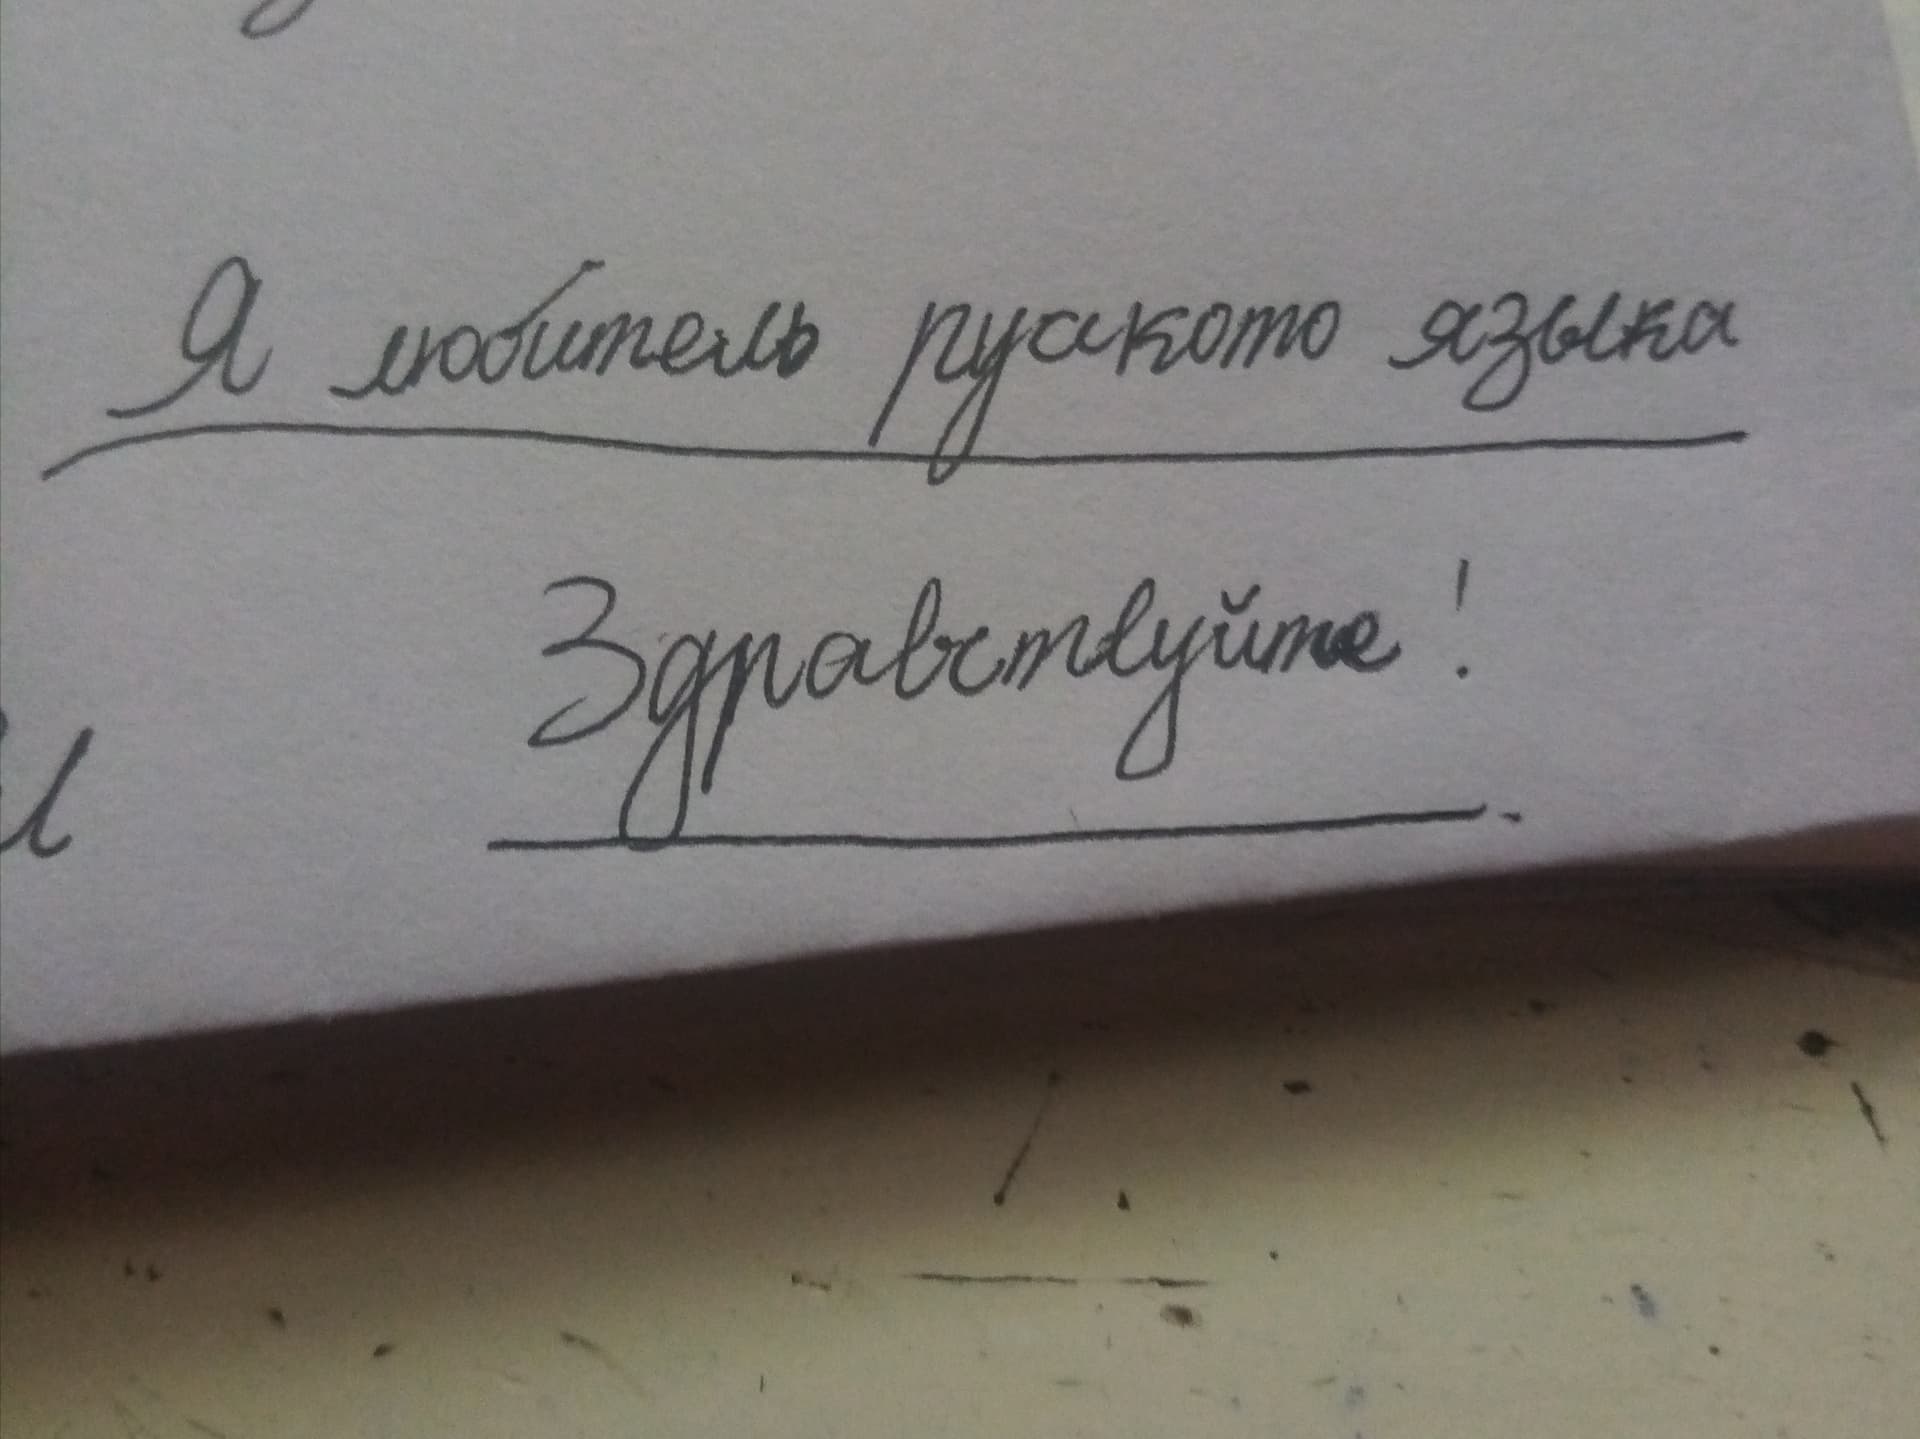 Я любитель русского языка
Здравствуйте!